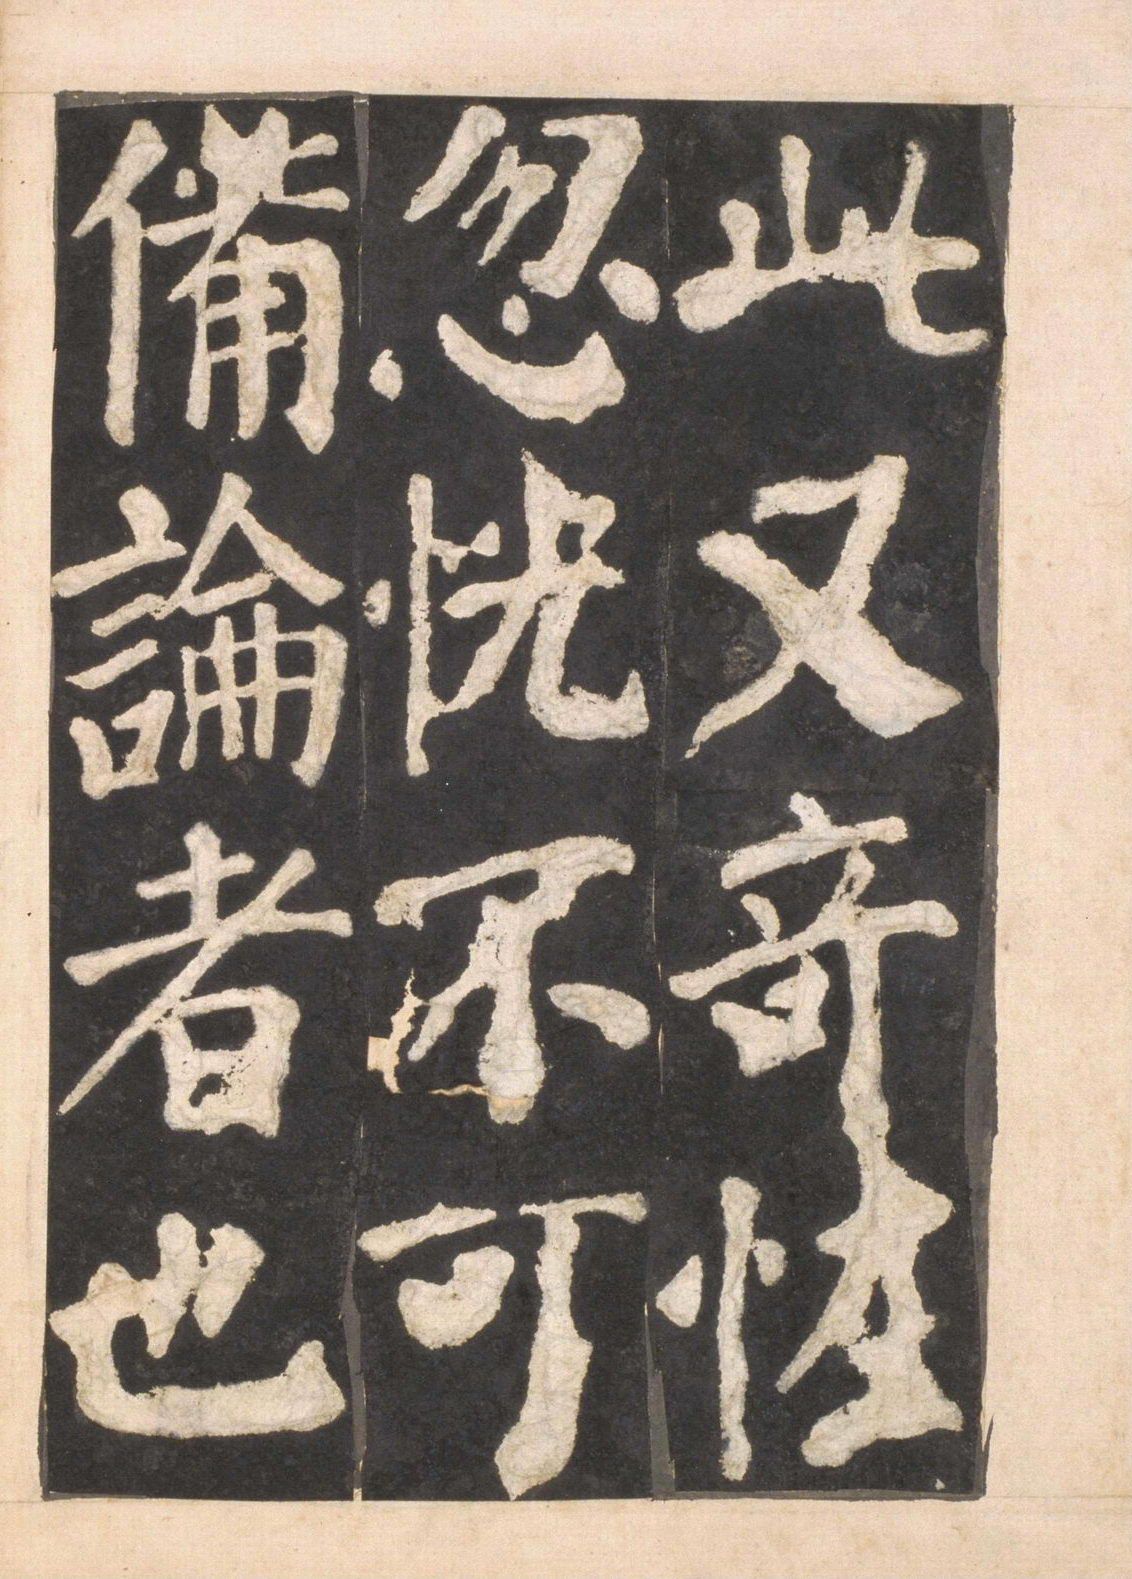 此又竒恠
忽怳不可
備論者也